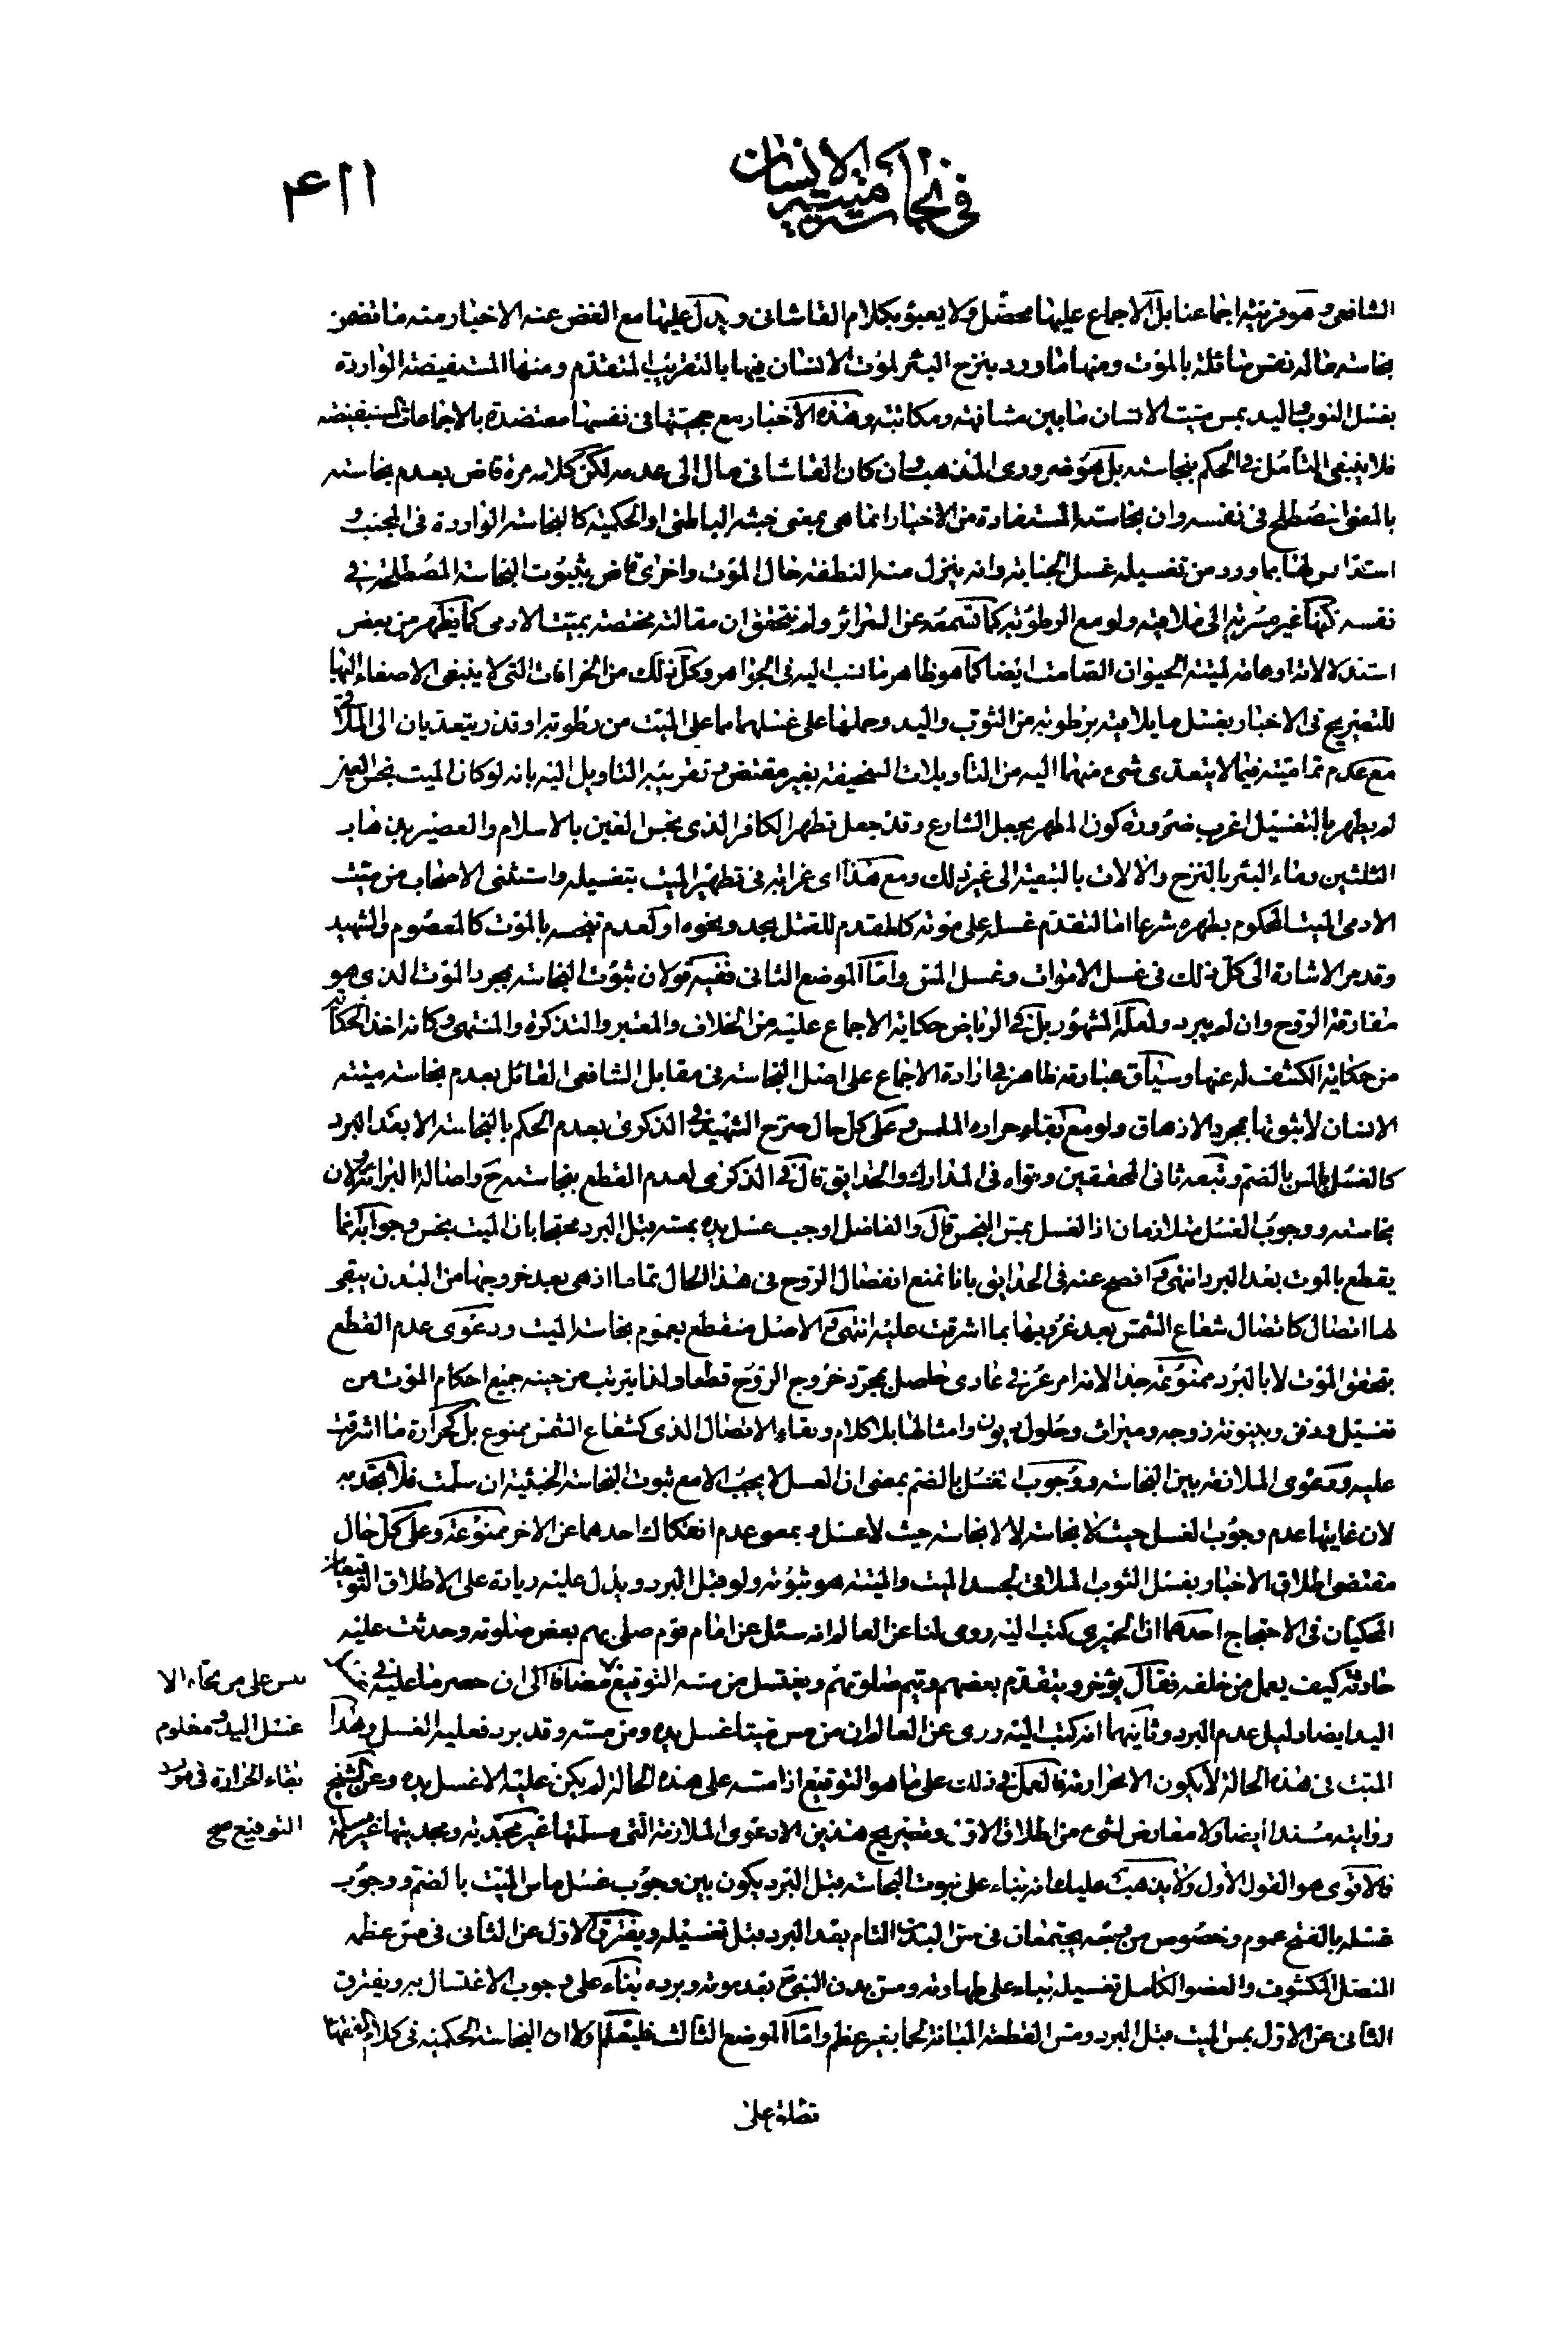 في نجاسة ميتة الانسان
۴۱۱
الشافعي وهو قرينة اجماعنا بل الاجماع عليها محصّل ولا يعبؤ بكلام القاشاني ويدل عليها مع الغض عنه الاخبار منه ما تضمن
نجاسة ما له نفس سائلة بالموت ومنها ما ورد بنزح البئر لموت الانسان فيها بالتقريب المتقدم ومنها المستفيضة الواردة
بغسل الثوب واليد بمس ميت الانسان ما بين مشافهة ومكاتبة وهذه الاخبار مع حجيتها في نفسها معتضدة بالاجماعات المستفيضة
فلا ينبغي التأمل في الحكم بنجاسته بل هو ضروري المذهب وان كان القاشاني مال الى عدمه لكن كلامه مرة قاض بعدم نجاسته
بالمعنى المصطلح في نفسه وان نجاسته المستفادة من الاخبار انما هي بمعنى خبثه الباطني او الحكمية كالنجاسة الواردة في الجنب و
بما ورد من تغسيله غسل الجنابة وانه ينزل منه النطفة حال الموت واخرى قاض بثبوت النجاسة المصطلحة في
نفسه لكنها غير مسرية الى ملاقيه ولو مع الرطوبة كما تسمعه عن السرائر ولم نتحقق ان مقالته مختصة بميت الادمي كما يظهر من بعض
استدلالاته او عامة لميتة الحيوان الصامت ايضا كما هو ظاهر ما نسب اليه في الجواهر وكل ذلك من الخرافات التي لا ينبغي الاصغاء اليها
للتصريح في الاخبار بغسل ما يلاقيه برطوبة من الثوب واليد وحملها على غسلهما مما على الميت من رطوبة او قذر يتعديان الى الملاقي
مع عدم تماميته فيما لا يتعدى شيء منهما اليه من التأويلات السخيفة بغير مقتض وتقريبه التاويل اليه بانه لو كان الميت نجس العين
لم يطهر بالتغسيل اغرب ضرورة كون المطهر بجعل الشارع وقد جعل تطهر الكافر الذي نجس العين بالاسلام والعصير بذهاب
الثلثين وماء البئر بالنزح والالات بالتبعية الى غير ذلك ومع هذا اي غرابة في تطهير الميت بتغسيله واستثنى الاصحاب من ميت
الادمي الميت المحكوم بطهره شرعا اما لتقدم غسله على موته كالمقدم للقتل بحد ونحوه او لعدم تنجسه بالموت كالمعصوم والشهيد
وقد مر الاشارة الى كل ذلك في غسل الاموات وغسل المس واما الموضع الثاني ففيه قولان ثبوت النجاسة بمجرد الموت الذي هو
مفارقة الروح وان لم يبرد ولعله المشهور بل في الرياض حكاية الاجماع عليه من الخلاف والمعتبر والتذكرة والمنتهى وكانه اخذ الحكاية
من حكاية الكشف له عنها وسياق عبارته ظاهر في ارادة الاجماع على اصل النجاسة في مقابل الشافعي القائل بعدم نجاسة ميتة
الانسان لا ثبوتها بمجرد الازهاق ولو مع بقاء حرارة الملمس وعلى كل حال صرح الشهيد في الذكرى بعدم الحكم بالنجاسة الا بعد البرد
كالغسل بالمس بالضم وتبعه ثاني المحققين وقواه في المدارك والحدايق قال في الذكرى لعدم القطع بنجاسته ح واصالة البرائة ولان
نجاسته ووجوب الغسل متلازمان اذ الغسل بمس النجس قال والفاضل اوجب غسل يده بمسه قبل البرد محتجا بان الميت نجس وجوابه انما
يقطع بالموت بعد البرد انتهى و افصح عنه في الحدايق بانا نمنع انفصال الروح في هذا الحال تماما اذ هي بعد خروجها من البدن يبقى
لها اتصال كاتصال شعاع الشمس بعد غروبها بما اشرقت عليه انتهى و الاصل منقطع بعموم نجاسة الميت ودعوى عدم القطع
بتحقق الموت لا بالبرد ممنوعة جدا لانه امر عرفي عادي حاصل بمجرد خروج الروح قطعا ولذا يترتب من حينه جميع احكام الموت من
تغسيل ودفن وبينونة زوجه وميراث وحلول ديون وامثالها بلا كلام وبقاء الاتصال الذي كشعاع الشمس ممنوع بل كحرارة ما اشرقت
عليه ودعوى الملازمة بين النجاسة ووجوب الغسل بالضم بمعنى ان الغسل لا يجب الا مع ثبوت النجاسة الخبثية ان سلمت فلا تجديه
لان غايتها عدم وجوب الغسل حيث لا نجاسة لا لا نجاسة حيث لا غسل و بمعنى عدم انفكاك احدهما عن الاخر ممنوعة وعلى كل حال
مقتضى اطلاق الاخبار بغسل الثوب الملاقي لجسد الميت والميتة هو ثبوته ولو قبل البرد ويدل عليه زيادة على الاطلاق التوقيعان
المحكيان في الاحتجاج احدهما ان الحميري كتب اليه روى لنا عن العالم انه سئل عن امام قوم صلى بهم بعض صلوته وحدثت عليه
حادثة كيف يعمل من خلفه فقال يؤخر ويتقدم بعضهم ويتم صلوتهم ويغتسل من مسه التوقيع مضافا الى ان حصر ما عليه في
اليد ايضا دليل عدم البرد وثانيهما انه كتب اليه وروى عن العالم ان من مس ميتا غسل يده ومن مسه وقد برد فعليه الغسل وهذا
الميت في هذه الحالة لا يكون الا بحرارته فالعمل في ذلك على ما هو التوقيع اذا مسه على هذه الحالة لم يكن عليه الا غسل يده وعن الشيخ
روايته مسندا ايضا ولا معارض لشيء من اطلاق الاول وتصريح هذين الا دعوى الملازمة التي مسلمها غير مجدية ومجديتها غير مسلمة
فالاقوى هو القول الاول ولا يذهب عليك انه بناء على ثبوت النجاسة قبل البرد يكون بين وجوب غسل ماس الميت بالضم ووجوب
غسله بالفتح عموم وخصوص من وجه يجتمعان في مس البدن التام بعد البرد قبل تغسيله ويفترق الاول عن الثاني في مس عظمه
المتصل المكشوف والعضو الكامل تغسيله بناء على طهارته ومس بدن النبي ص بعد موته وبرده بناء على وجوب الاغتسال به ويفترق
الثاني عن الاول بمس الميت قبل البرد ومس القطعة المبانة لحما بغير عظم واما الموضع الثالث فليعلم اولا ان النجاسة الحكمية في كلام الفقهاء
ليس على من نحّاه الا
غسل اليد و معلوم
بقاء الحرارة في مورد
التوقيع صح
تطلق على